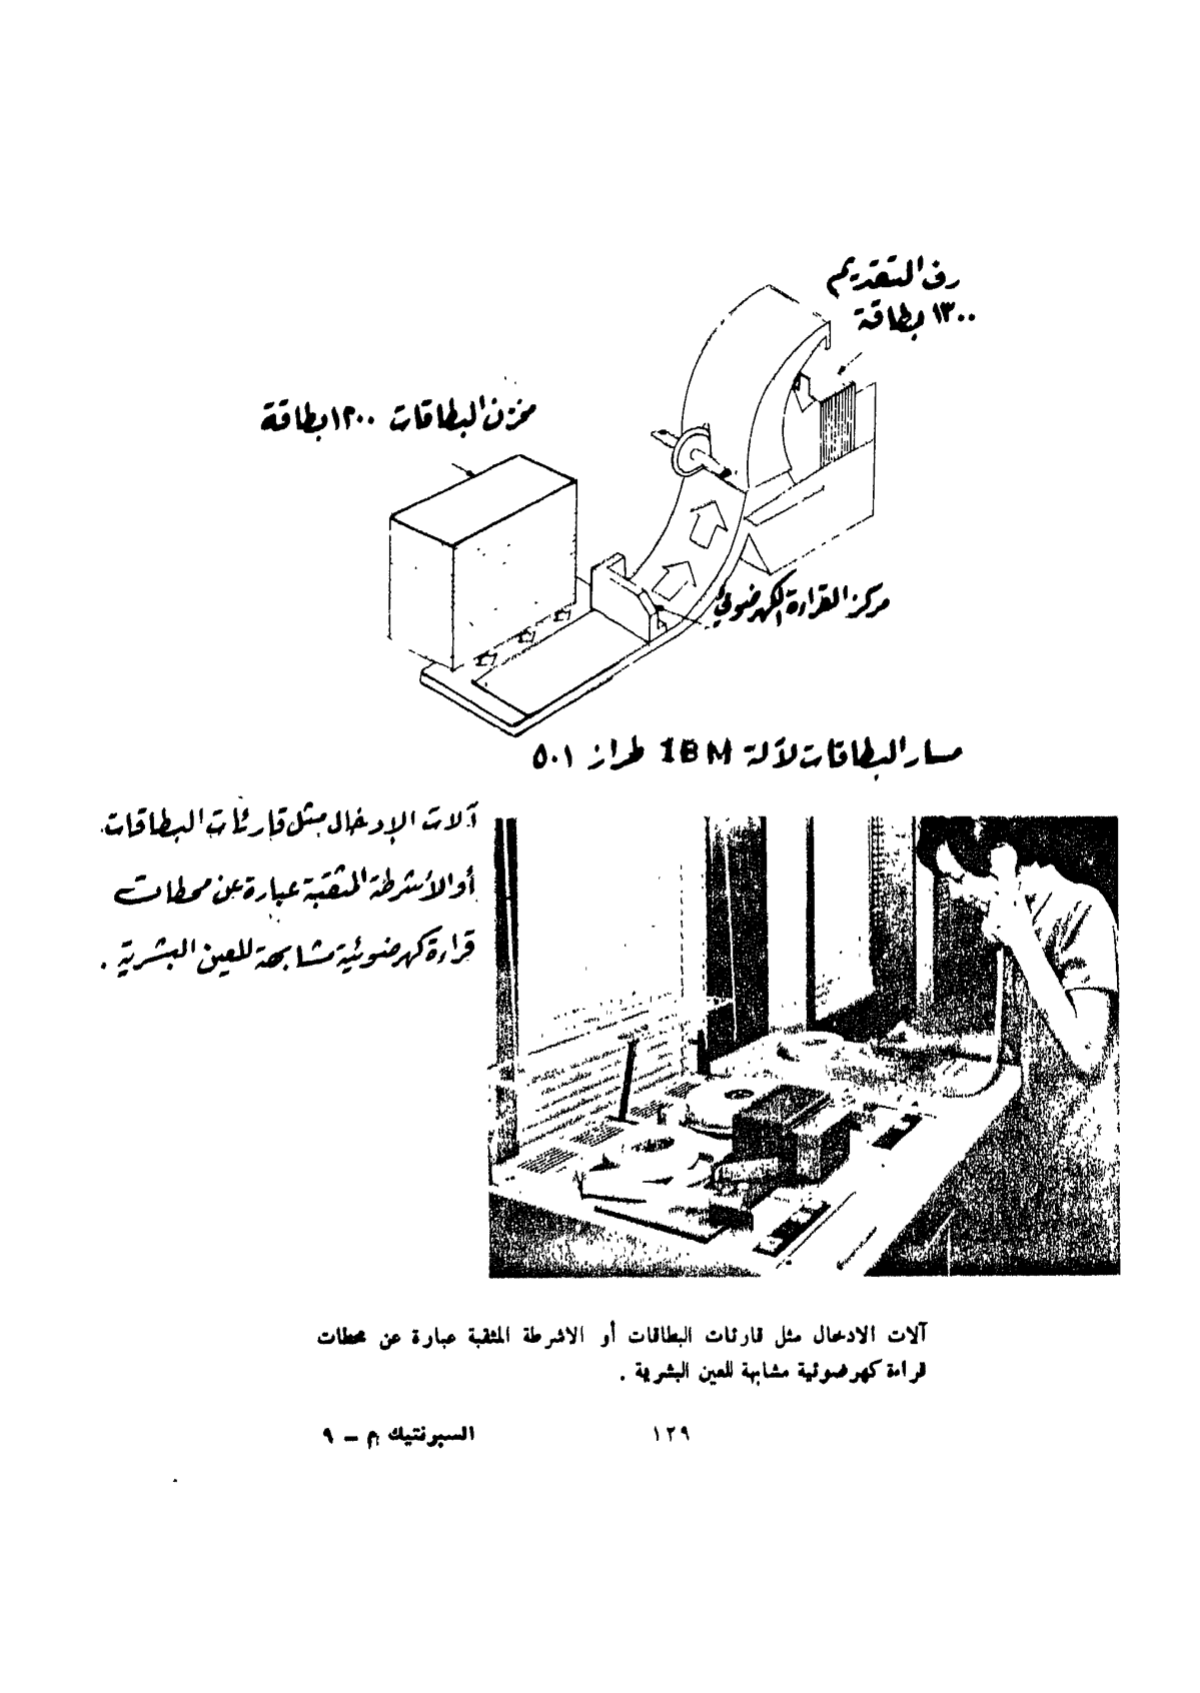 رف التقديم
١٣٠٠ بطاقة
مخزن البطاقات ١٢٠٠ بطاقة
مركز القراءة الكهرضوئي
مسار البطاقات لآلة IBM طراز ٥٠١
آلات الإدخال مثل قارئات البطاقات
أو الأشرطة المثقبة عبارة عن محطات
قراءة كهرضوئية مشابهة للعين البشرية .
آلات الادخال مثل قارئات البطاقات أو الاشرطة المثقبة عبارة عن محطات
قراءة كهرضوئية مشابهة للعين البشرية .
١٢٩
السبرنتيك م – ٩